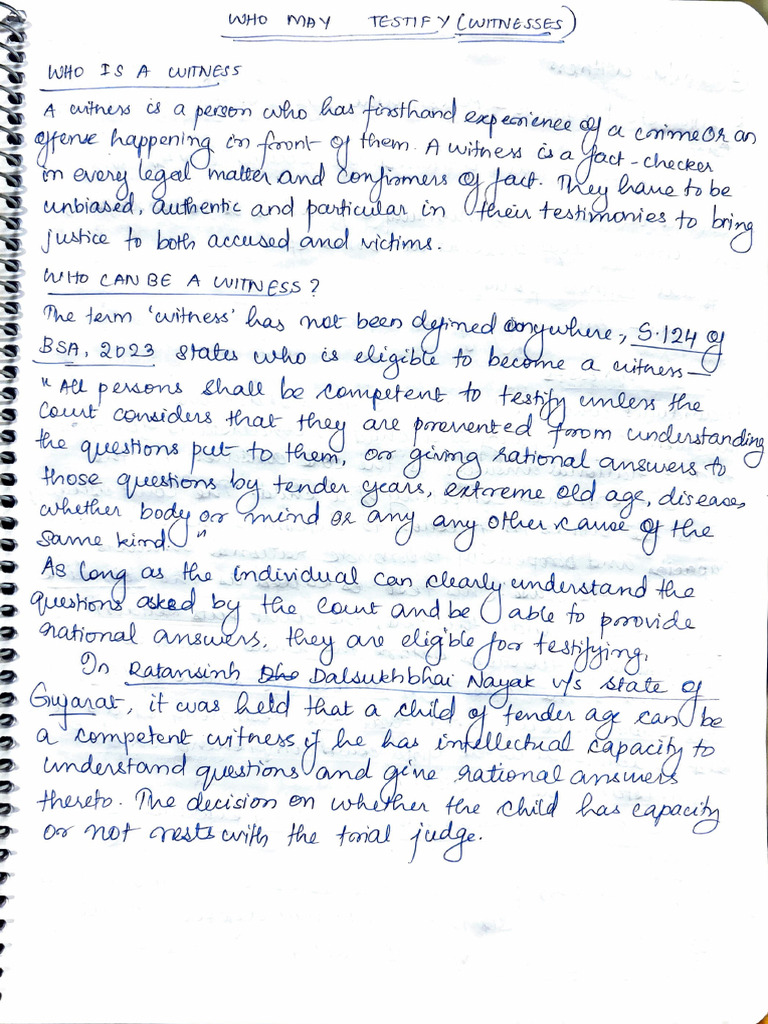 WHO MAY TESTIFY (WITNESSES)
WHO IS A WITNESS
A witness is a person who has firsthand experience of a crime or an
offense happening in front of them. A witness is a fact-checker
in every legal matter and confirmers of fact. They have to be
unbiased, authentic and particular in their testimonies to bring
justice to both accused and victims.
WHO CAN BE A WITNESS?
The term 'witness' has not been defined anywhere, S.124 of
BSA, 2023 states who is eligible to become a witness—
"All persons shall be competent to testify unless the
Court considers that they are prevented from understanding
the questions put to them, or giving rational answers to
those questions by tender years, extreme old age, disease,
whether body or mind or any any other cause of the
same kind."
As long as the individual can clearly understand the
questions asked by the Court and be able to provide
rational answers, they are eligible for testifying.
In Ratansinh Dalsukhbhai Nayak v/s State of
Gujarat, it was held that a child of tender age can be
a competent witness if he has intellectual capacity to
understand questions and give rational answers
thereto. The decision on whether the child has capacity
or not rests with the trial judge.